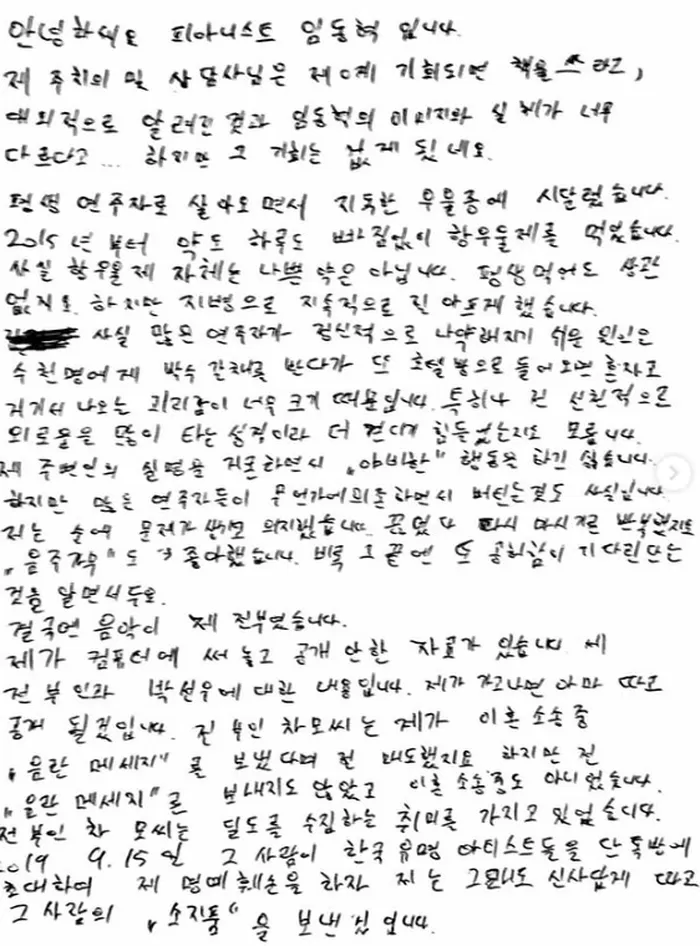 안녕하세요 피아니스트 임동혁 입니다.
제 주치의 및 상담사님은 제게 기회되면 책을 쓰라고,
대외적으로 알려진 것과 임동혁의 이미지와 실제가 너무
다르다고... 하지만 그 기회는 없게 됐네요.
평생 연주자로 살아오면서 지독한 우울증에 시달렸습니다.
2015년 부터 약도 하루도 빠짐없이 항우울제를 먹었습니다.
사실 항우울제 자체는 나쁜 약은 아닙니다. 평생먹어도 상관
없지요. 하지만 지병으로 지속적으로 전 아프게 했습니다.
사실 많은 연주자가 정신적으로 나약해지기 쉬운 원인은
수천명에게 박수 갈채를 받다가 또 호텔 방으로 들어오면 혼자고
거기서 나오는 괴리감이 너무 크기 때문입니다. 특히나 전 선천적으로
외로움을 많이 타는 성격이라 더 견디기 힘들었는지도 모릅니다.
제 주변인의 실명을 거론하면서 „야비한" 행동은 하기 싫습니다.
하지만 많은 연주자들이 무언가에 의존하면서 버틴는것도 사실입니다.
저는 술에 문제가 생기도 의지했습니다. 끊었다 다시 마시기를 반복했지요
„음주가무"도 좋아했습니다. 비록 그 끝엔 또 공허함이 기다린다는
것을 알면서두요.
결국엔 음악이 제 전부였습니다.
제가 컴퓨터에 써 놓고 공개 안한 자료가 있습니다. 제
전 부인과 박선우에 대한 내용입니다. 제가 가고나면 아마 따로
공개 될것입니다. 전 부인 차모씨는 제가 이혼 소송 중
„음란 메세지"를 보냈다며 전 매도했지요 하지만 전
„음란 메세지"를 보내지도 않았고 이혼 소송중도 아니었습니다.
전부인 차 모씨는 딜도를 수집하는 취미를 가지고 있었습니다.
2019 9.15일 그 사람이 한국 유명 아티스트들을 단톡방에
초대하여 제 명예훼손을 하자 저는 그래도 신사답게 따로
그 사람의 „소지품"을 보낸겁니다.